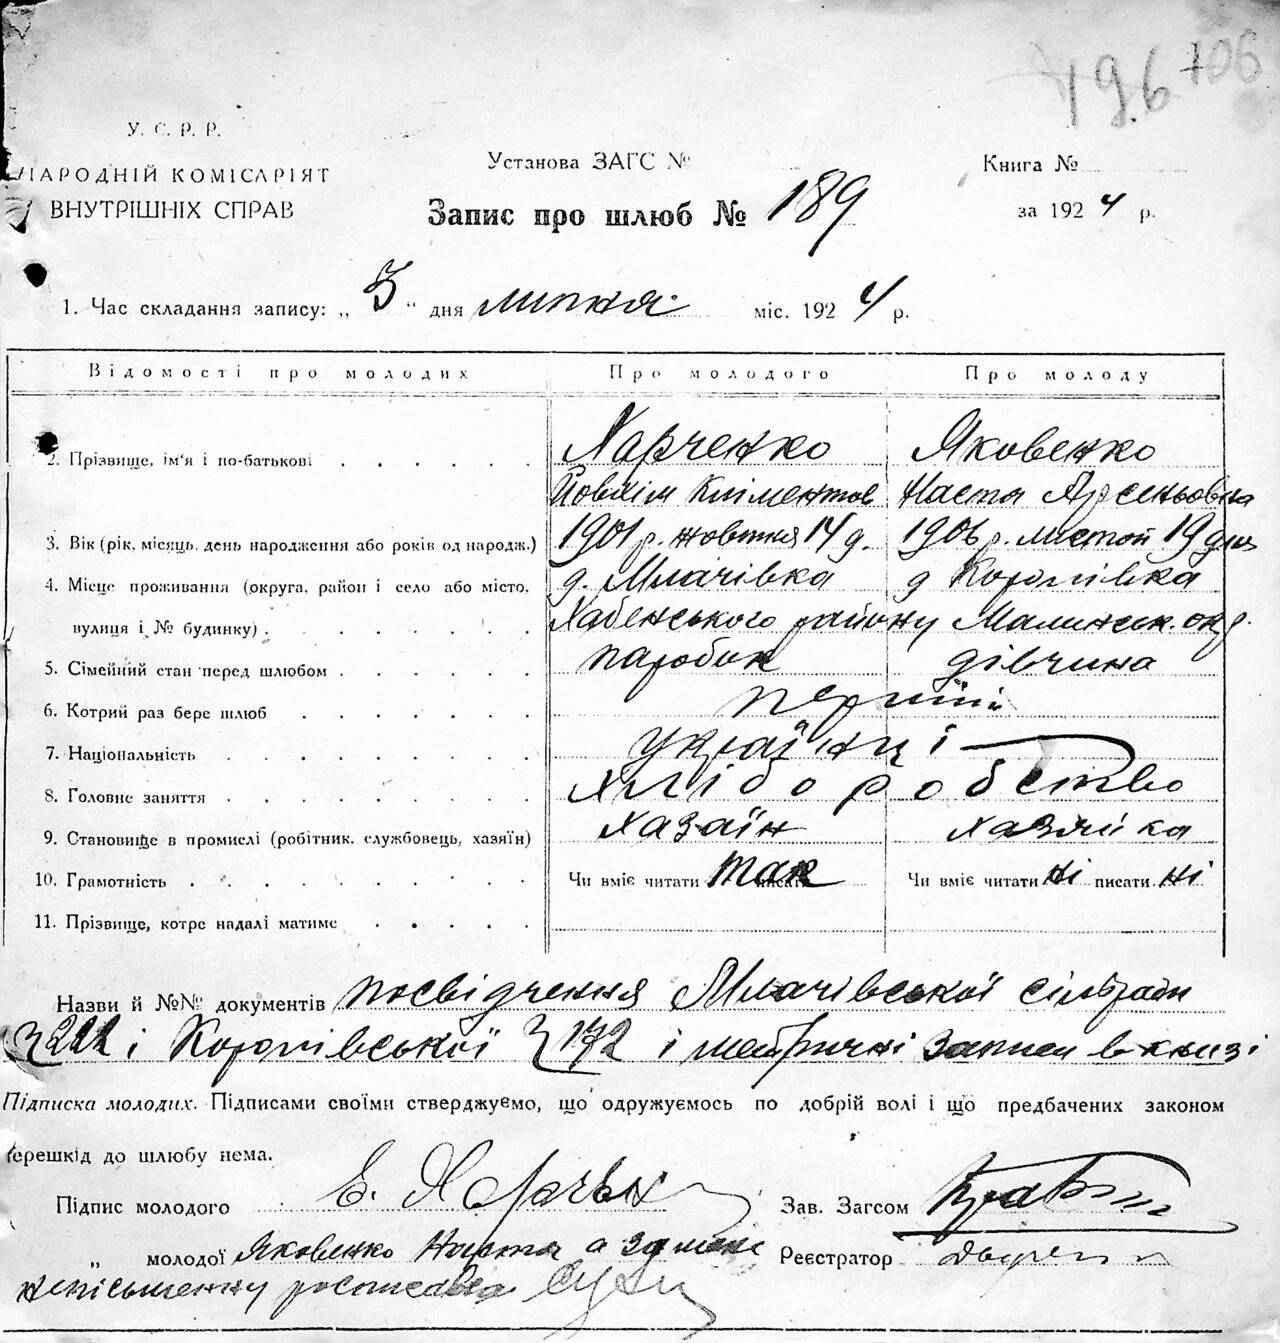 196 706
У. С. Р. Р.
НАРОДНІЙ КОМІСАРІЯТ
ВНУТРІШНІХ СПРАВ
Установа ЗАГС №
Книга №
Запис про шлюб № 189
за 1924 р.
1. Час складання запису: „ 3 “ дня липня міс. 1924 р.
Відомості про молодих Про молодого Про молоду
2. Прізвище, ім'я і по-батькові Харченко Яковенко
Климентов Настя Арсеньовна
3. Вік (рік, місяць, день народження або років од народж.) 1901 р. жовтня 14 д. 1906 р. листоп 19 дня
4. Місце проживання (округа, район і село або місто, д. Млачівка д Королівка
вулиця і № будинку) Хабенського району Малинськ. окр.
5. Сімейний стан перед шлюбом парубок дівчина
6. Котрий раз бере шлюб перший
7. Національність українці
8. Головне заняття хліборобство
9. Становище в промислі (робітник, службовець, хазяїн) хазаїн хазяйка
10. Грамотність Чи вміє читати так писати Чи вміє читати ні писати ні
11. Прізвище, котре надалі матиме
Назви й №№ документів посвідчення Млачівської сільради
222 і Королівської 172 і метричні записи в книзі
Підписка молодих. Підписами своїми стверджуємо, що одружуємось по добрій волі і що предбачених законом
перешкід до шлюбу нема.
Підпис молодого Е. Харчен Зав. Загсом
„ молодої Яковенко Настя а за неї Реєстратор
неписьменну росписався